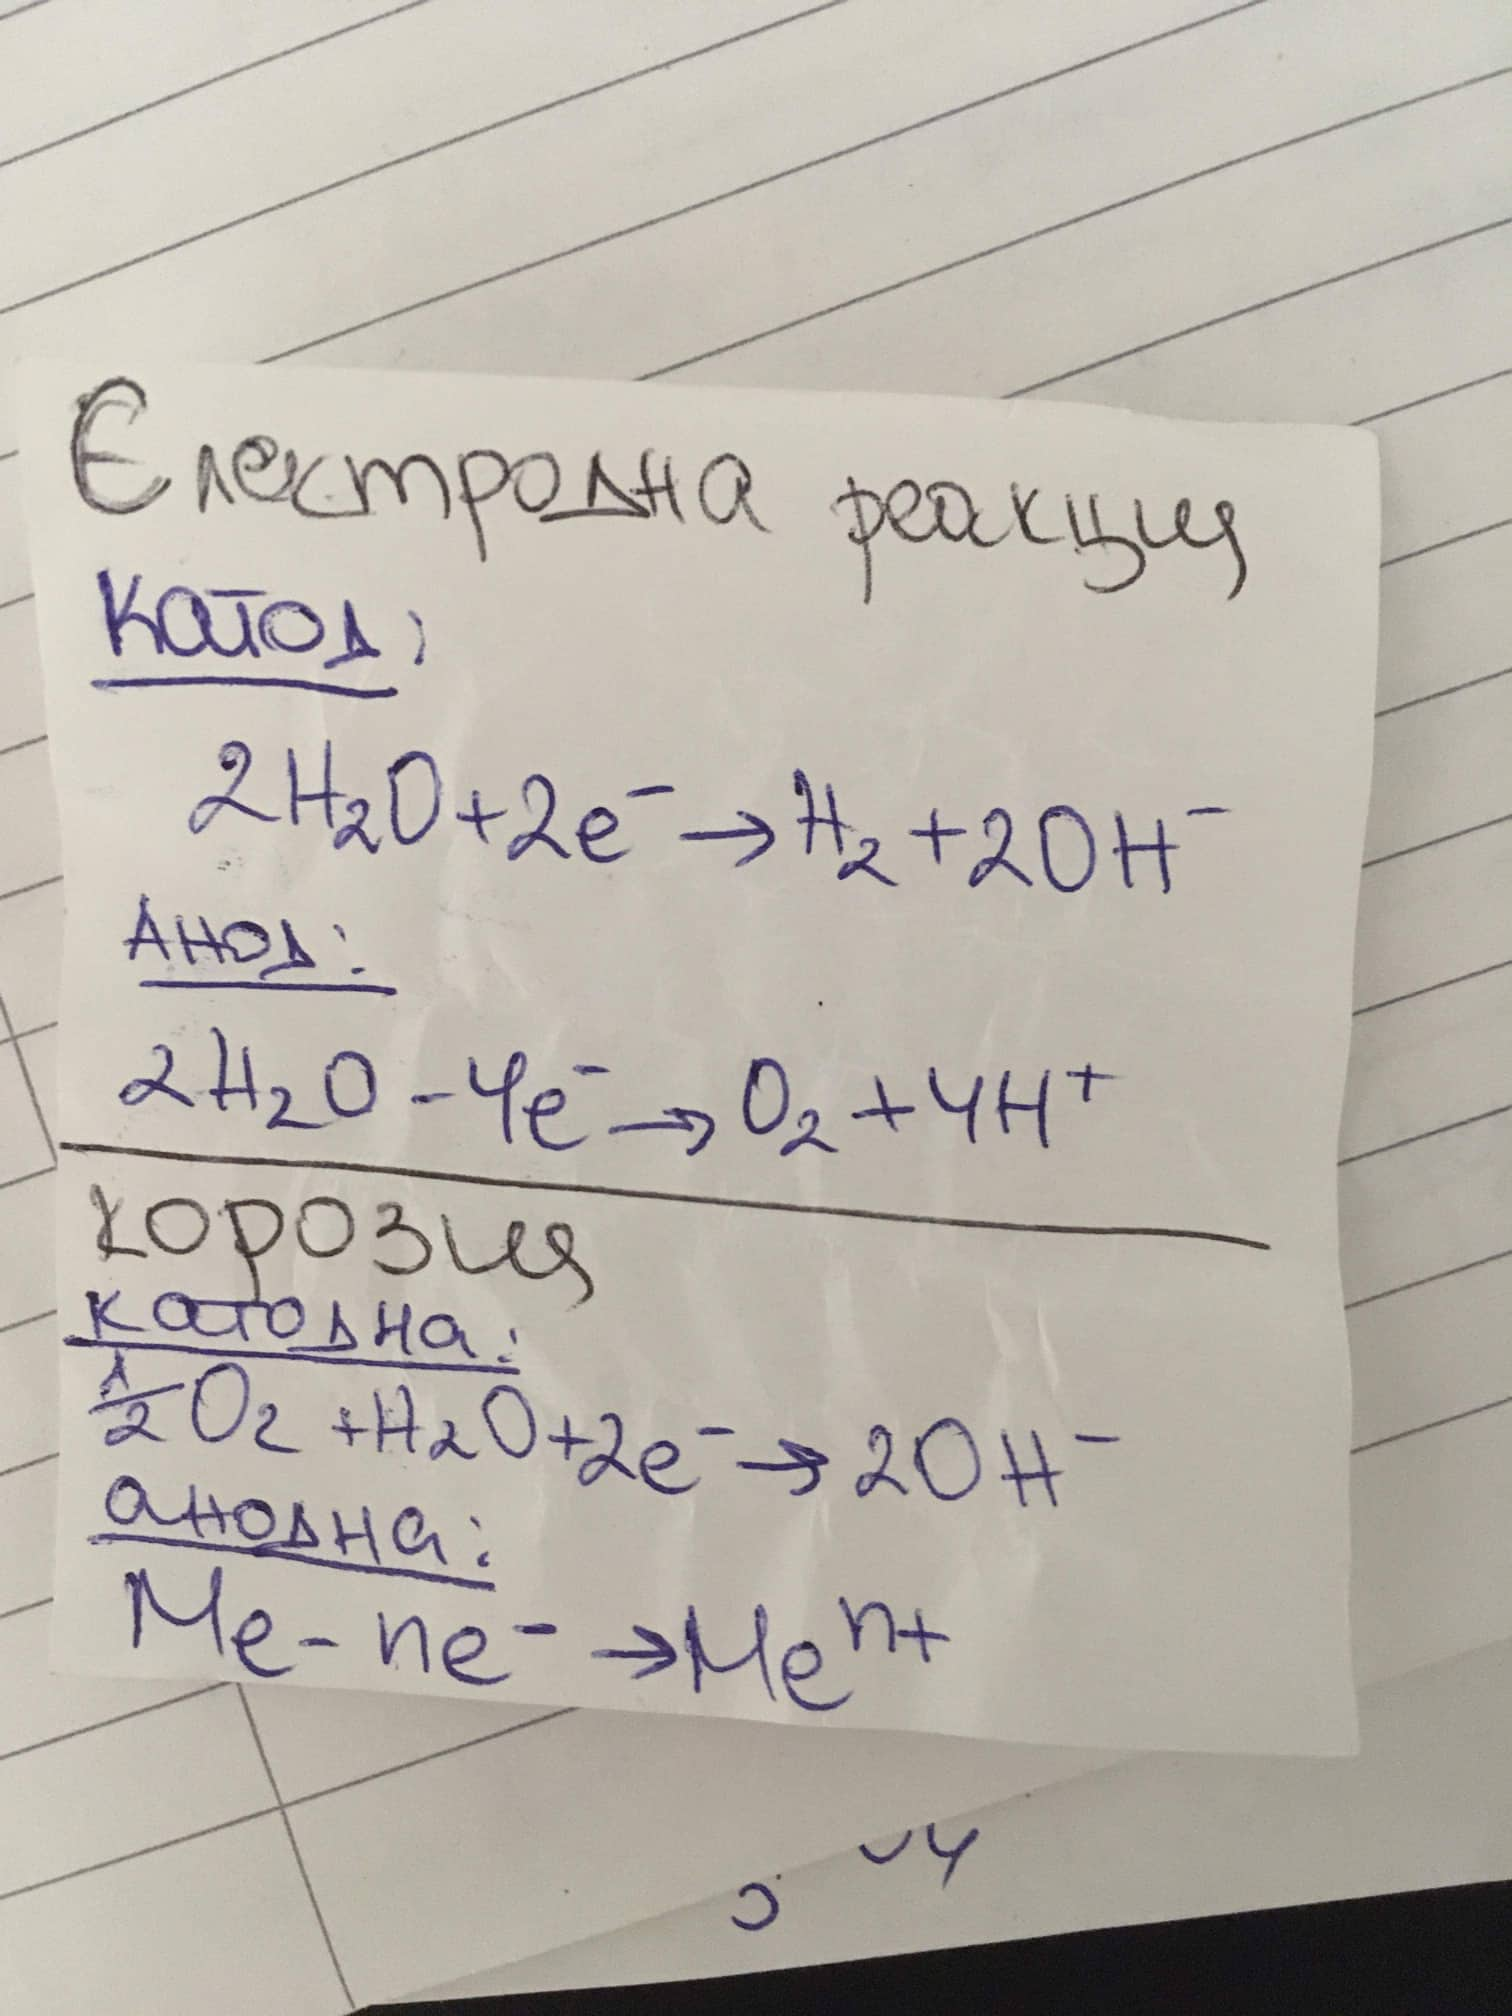 Електродна реакция
Катод:
2H₂O+2e⁻→H₂+2OH⁻
Анод:
2H₂O-4e⁻→O₂+4H⁺
корозия
катодна:
½O₂+H₂O+2e⁻→2OH⁻
анодна:
Me-ne⁻→Meⁿ⁺